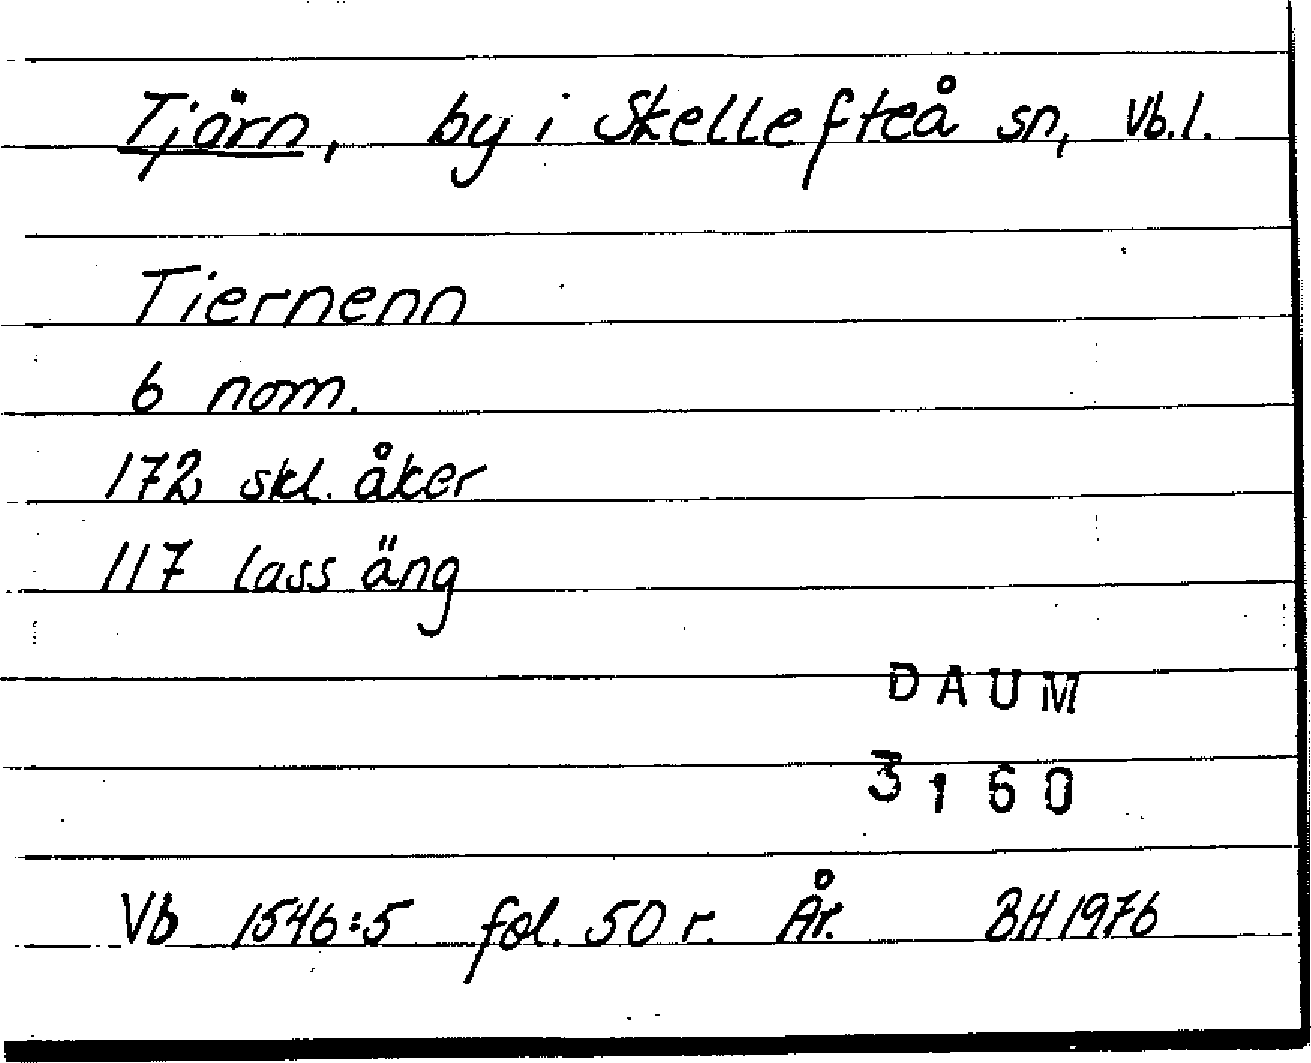 Tjärn, by i Skellefteå sn, Vb.l.
Tiernenn
6 nom.
172 skl. åker
117 lass äng
DAUM
3160
Vb 1546:5 fol. 50 r. År. BH 1976